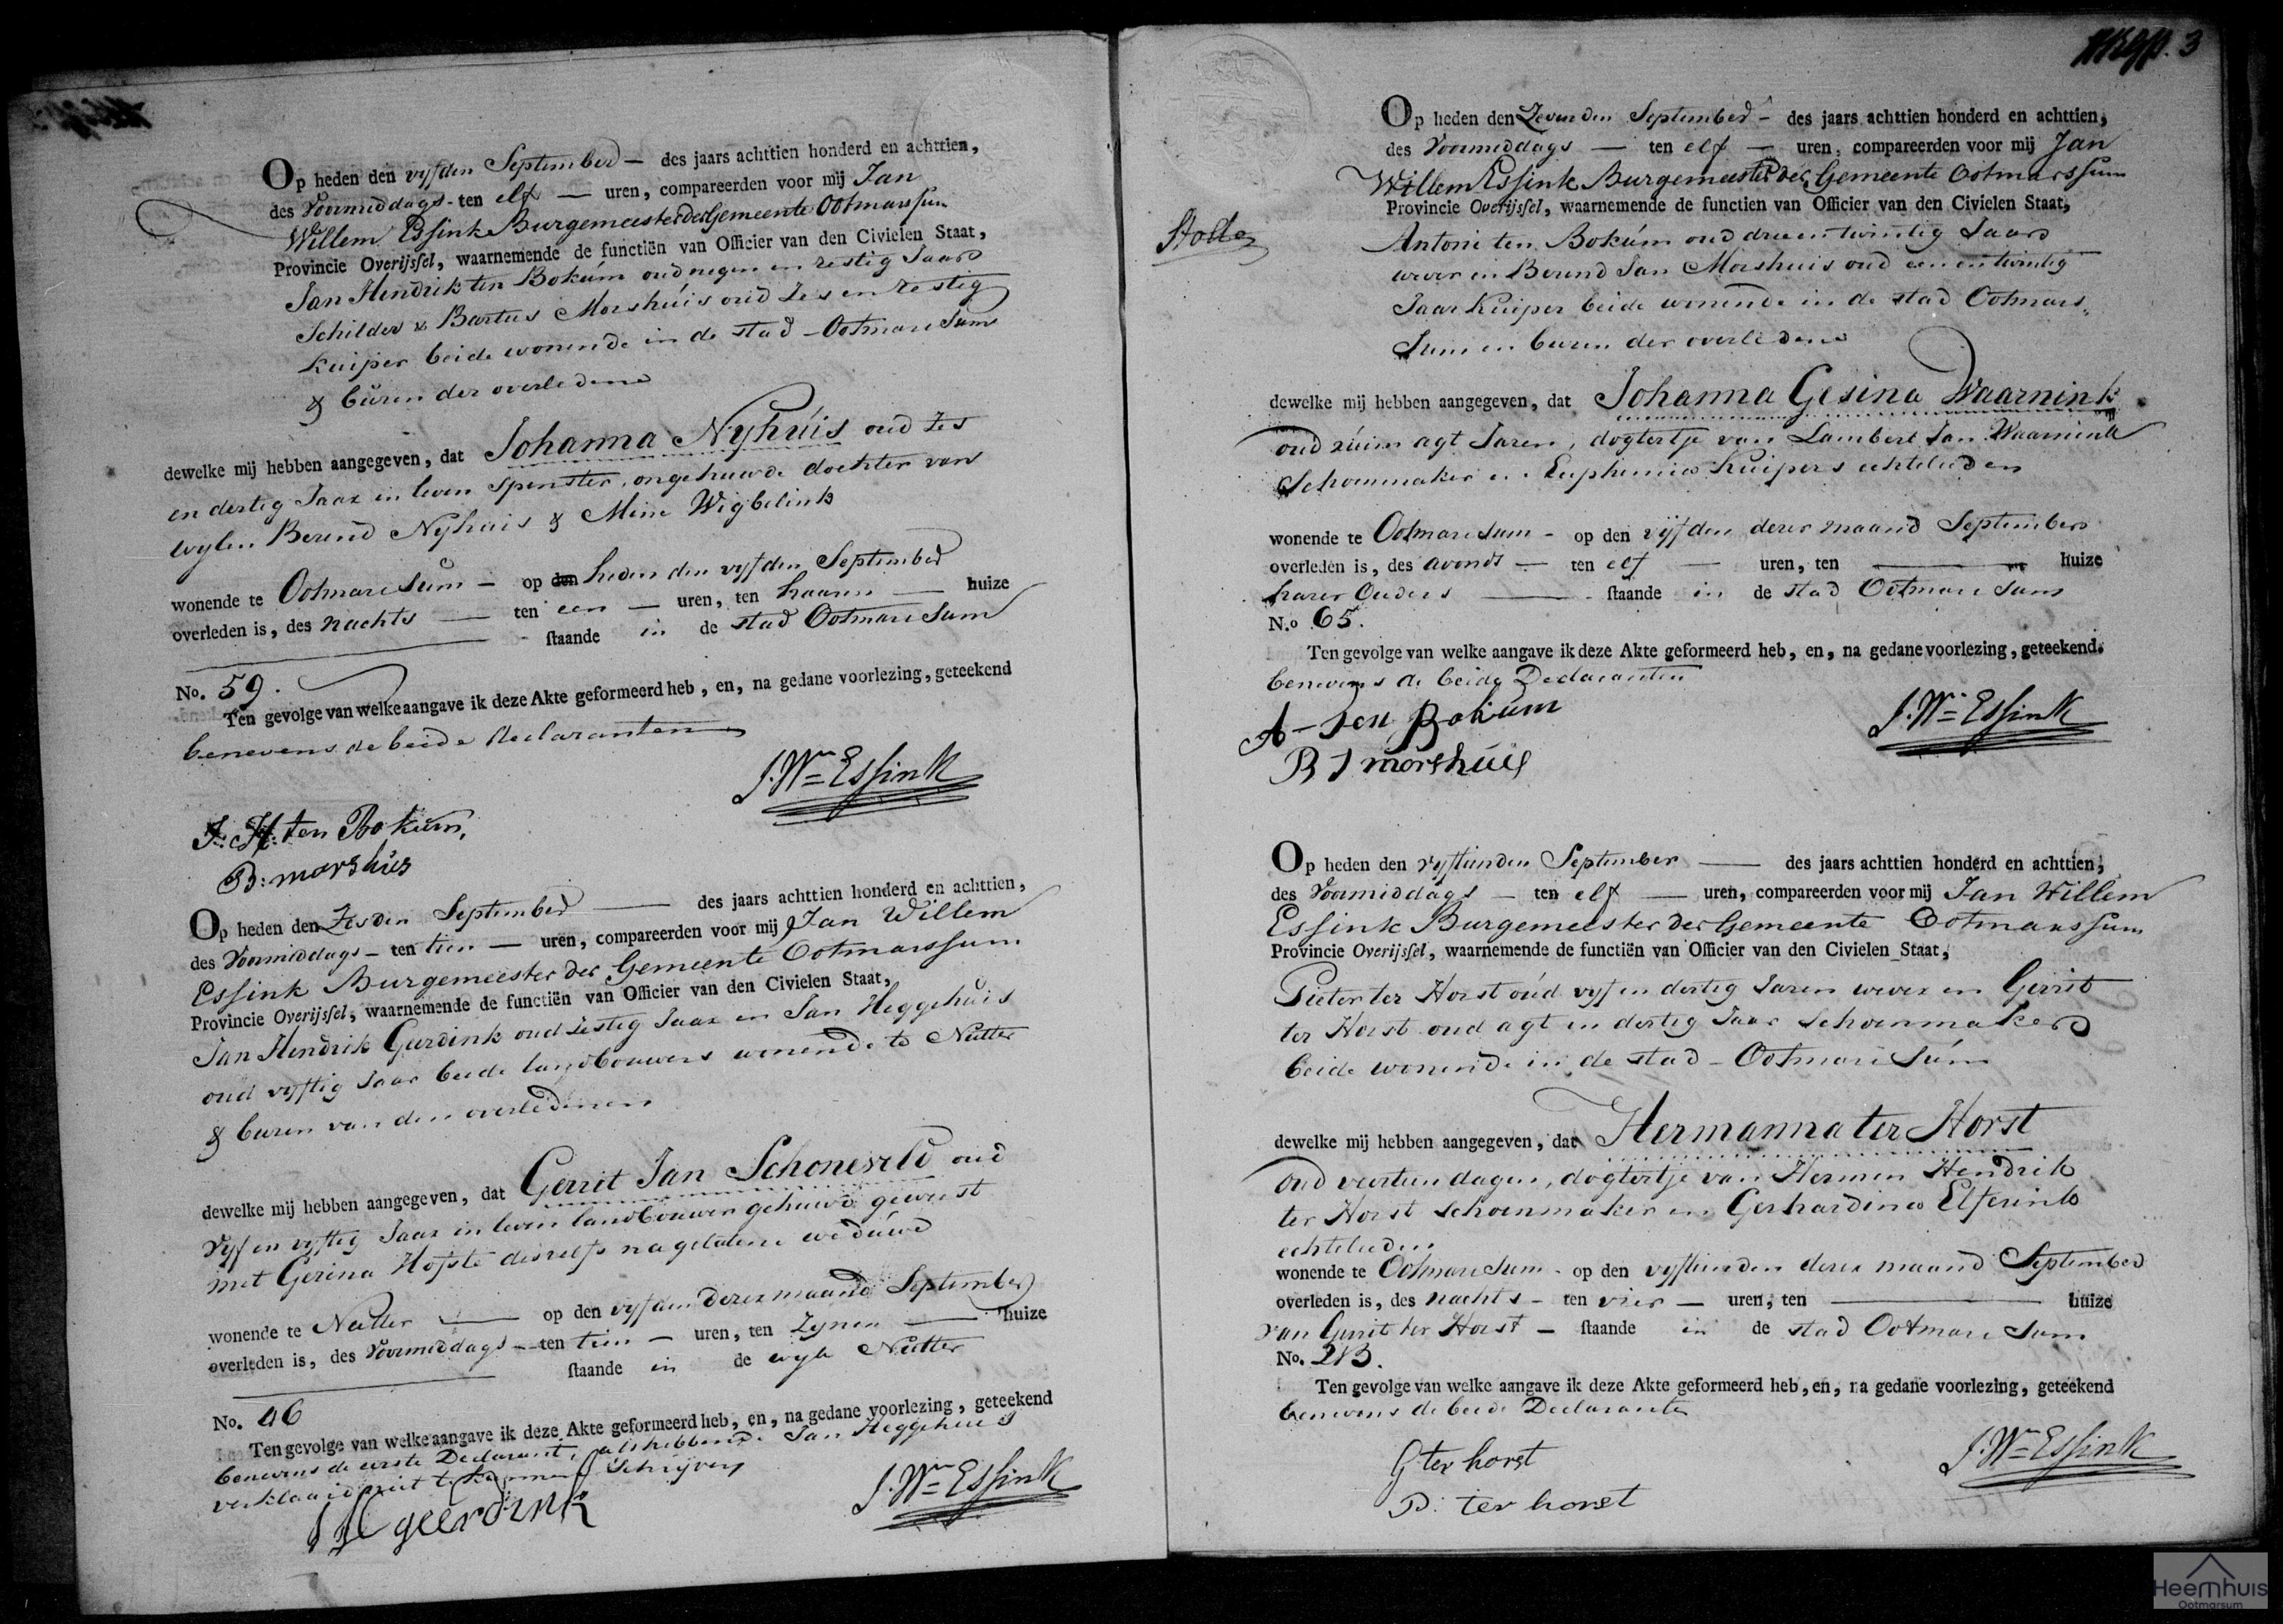 Op heden den vyfden September — des jaars achttien honderd en achttien,
des Voormiddags - ten elf — uren, compareerden voor mij Jan
Willem Essink Burgemeester der Gemeente Ootmarssum
Provincie Overijssel, waarnemende de functiën van Officier van den Civielen Staat,
Jan Hendrik ten Bokúm oud negen en zestig Jaar
Schilder & Bartus Morshúis oud zes en zestig
Kuiper beide wonende in de stad - Ootmarssum
& búren der overledene
dewelke mij hebben aangegeven, dat Johanna Nyhúis oud zes
en dertig Jaar in leven Spinster, ongehuwde dochter van
wylen Berend Nyhuis & Mine Wigbelink
wonende te Ootmarssum - op den heden den vyfden September
overleden is, des nachts — ten een — uren, ten haaren — huize
staande in de stad Ootmarssum
No. 59.
Ten gevolge van welke aangave ik deze Akte geformeerd heb, en, na gedane voorlezing, geteekend
benevens de beide declaranten
J. Wm Essink
J: H: ten Bokúm,
B: morshús
Op heden den Zesden September — des jaars achttien honderd en achttien,
des Voormiddags - ten tien — uren, compareerden voor mij Jan Willem
Essink Burgemeester der Gemeente Ootmarssum
Provincie Overijssel, waarnemende de functiën van Officier van den Civielen Staat,
Jan Hendrik Gerdink oud zestig Jaar en Jan Heggehuis
oud vyftig Jaar beide landbouwers wonende te Nutter
& buren van den overledenen
dewelke mij hebben aangegeven, dat Gerrit Jan Schoneveld oud
Vyf en vyftig Jaar in leven landbouwer gehuwd geweest
met Gerina Hofste deszelfs nagelatene weduwe
wonende te Nutter — op den vyfden dezer maand September
overleden is, des Voormiddags - ten tien — uren, ten Zynen — huize
staande in de wyk Nutter
No. 46
Ten gevolge van welke aangave ik deze Akte geformeerd heb, en, na gedane voorlezing, geteekend
benevens de eerste Declarant, als hebbende Jan Heggehuis
verklaard niet te kunnen Schryven
J. Wm Essink
J H geerdink
3
Op heden den Zevenden September - des jaars achttien honderd en achttien,
des Voormiddags — ten elf — uren, compareerden voor mij Jan
Willem Essink Burgemeester der Gemeente Ootmarssum
Provincie Overijssel, waarnemende de functien van Officier van den Civielen Staat,
Antoni ten Bokúm oud drie en twintig Jaar
wever en Berend Jan Morshuis oud een en twintig
Jaar Kuiper beide wonende in de stad Ootmars„
sum en buren der overledene
dewelke mij hebben aangegeven, dat Johanna Gesina Waarnink
oud rúim agt Jaren, dogtertje van Lambert Jan Waarnink
Schoenmaker en Euphemia Kuipers echtelieden
wonende te Ootmarssum - op den vyfden dezer maand September
overleden is, des avonds — ten elf — uren, ten — huize
harer Ouders — staande in de stad Ootmarssum
N.o 65.
Ten gevolge van welke aangave ik deze Akte geformeerd heb, en, na gedane voorlezing, geteekend.
benevens de beide Declaranten
J. Wm Essink
A - ten Bokúm
B J morshúis
Op heden den vyftienden September — des jaars achttien honderd en achttien,
des Voormiddags — ten elf — uren, compareerden voor mij Jan Willem
Essink Burgemeester der Gemeente Ootmarssum
Provincie Overijssel, waarnemende de functiën van Officier van den Civielen Staat,
Pieter ter Horst oúd vyf en dertig Jaren wever en Gerrit
ter Horst oud agt en dertig Jaar Schoenmaker
beide wonende in de stad - Ootmarssúm
dewelke mij hebben aangegeven, dat Hermanna ter Horst
Oud veertien dagen, dogtertje van Hermen Hendrik
ter Horst Schoenmaker en Gerhardina Elferink
echtelieden
wonende te Ootmarssum - op den vyftienden dezer maand September
overleden is, des nachts - ten vier — uren, ten — huize
van Gerrit ter Horst - staande in de stad Ootmarssum
No. 213.
Ten gevolge van welke aangave ik deze Akte geformeerd heb, en, na gedane voorlezing, geteekend
benevens de beide Declaranten
J. Wm Essink
G ter horst
P: ter horst
Heemhuis
Ootmarsum